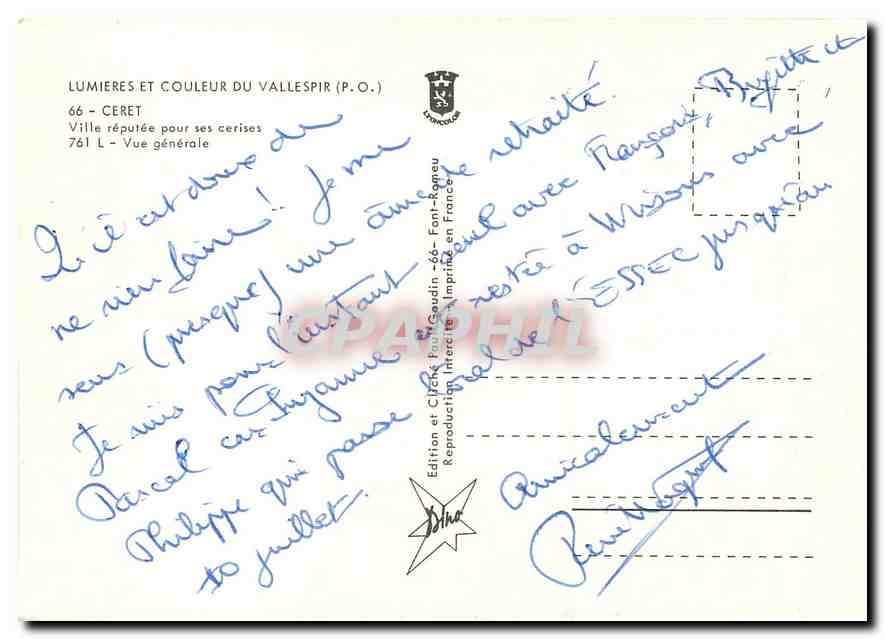 LUMIERES ET COULEUR DU VALLESPIR (P.O.)
66 - CERET
Ville réputée pour ses cerises
761 L - Vue générale
LYONCOLOR
Edition et Cliché Paul Goudin -66- Font-Romeu
Reproduction Interdite - Imprimé en France
Dino
CPAPHIL
Qu'il est doux de
ne rien faire !! Je me
sens (presque) une âme de retraité.
Je suis pour l'instant seul avec François, Brigitte et
Pascal car Suzanne est restée à Wissous avec
Philippe qui passe l'oral de l'ESSEC jusqu'au
10 juillet.
Amicalement
René